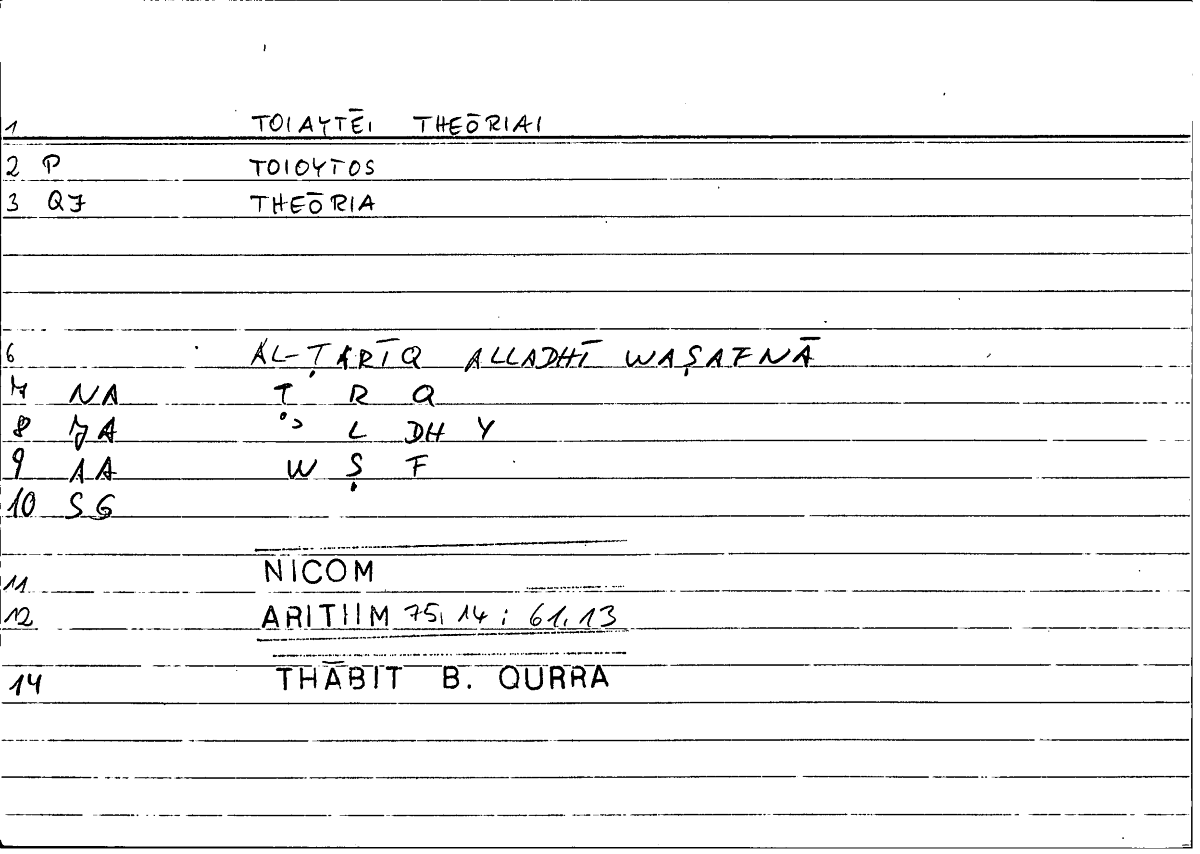 1 TOIAYTĒI THEŌRIAI
2 P TOIOYTOS
3 QJ THEŌRIA
6 AL-ṬARĪQ ALLADHĪ WAṢAFNĀ
7 NA Ṭ R Q
8 JA ° ʾ L DH Y
9 AA W Ṣ F
10 SG
11 NICOM
12 ARITHM 75, 14 ; 61, 13
14 THĀBIT B. QURRA